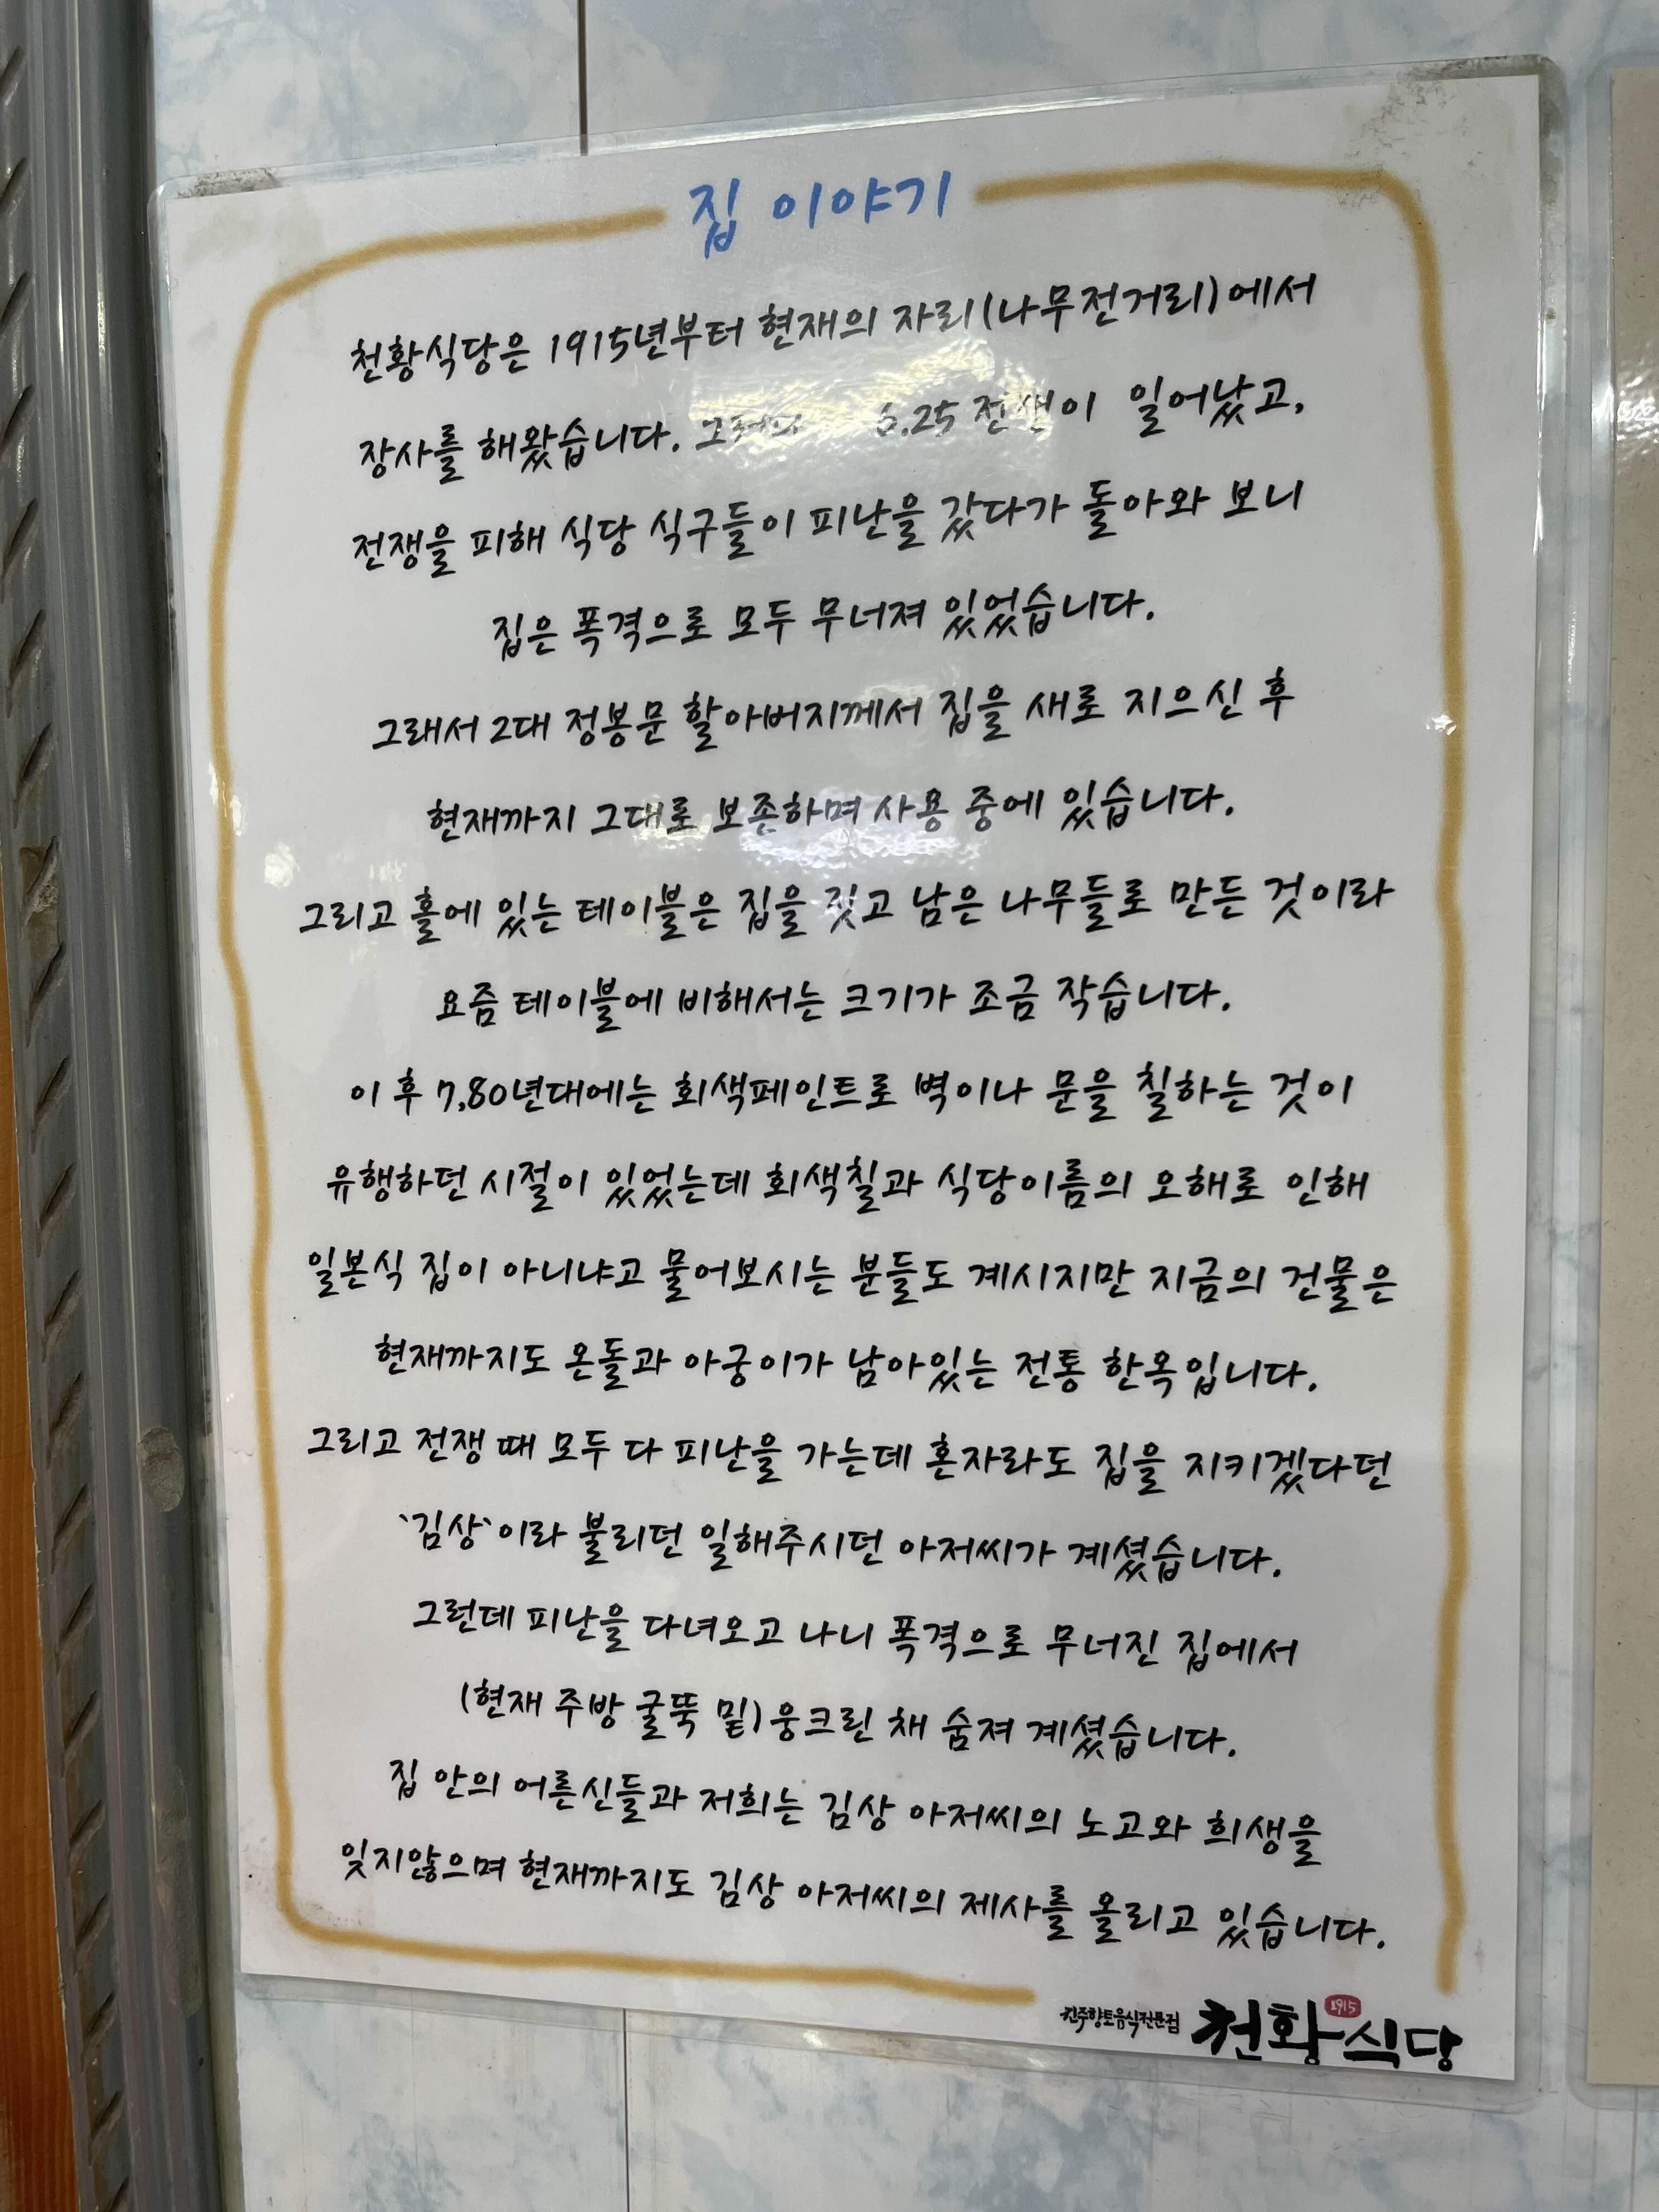 집 이야기
천황식당은 1915년부터 현재의 자리(나무전거리)에서
장사를 해왔습니다. 6.25 전쟁이 일어났고,
전쟁을 피해 식당 식구들이 피난을 갔다가 돌아와 보니
집은 폭격으로 모두 무너져 있었습니다.
그래서 2대 정봉문 할아버지께서 집을 새로 지으신 후
현재까지 그대로 보존하며 사용 중에 있습니다.
그리고 홀에 있는 테이블은 집을 짓고 남은 나무들로 만든 것이라
요즘 테이블에 비해서는 크기가 조금 작습니다.
이후 7,80년대에는 회색페인트로 벽이나 문을 칠하는 것이
유행하던 시절이 있었는데 회색칠과 식당이름의 오해로 인해
일본식 집이 아니냐고 물어보시는 분들도 계시지만 지금의 건물은
현재까지도 온돌과 아궁이가 남아있는 전통 한옥입니다.
그리고 전쟁 때 모두 다 피난을 가는데 혼자라도 집을 지키겠다던
`김상`이라 불리던 일해주시던 아저씨가 계셨습니다.
그런데 피난을 다녀오고 나니 폭격으로 무너진 집에서
(현재 주방 굴뚝 밑) 웅크린 채 숨져 계셨습니다.
집 안의 어른신들과 저희는 김상 아저씨의 노고와 희생을
잊지않으며 현재까지도 김상 아저씨의 제사를 올리고 있습니다.
진주향토음식전문점 천황식당 1915